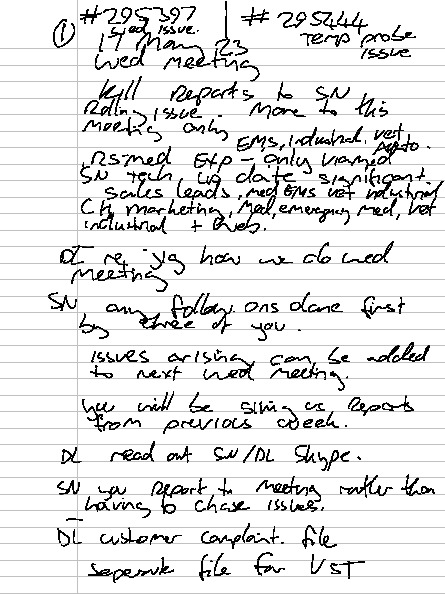 ① #295397 | #295444
Sted issue. Temp probe issue
17 May 23
Wed meeting
Kill Reports to SN
Rolling issue. More to this
meeting only
EMS, industrial, vet
Resmed Exp - only named
SN tech, up date significant
sales leads, med EMS vet industrial
CH marketing, Med, emergency med, vet
industrial + Web.
DL re, how we do wed
meeting
SN any follow ons done first
by three of you.
issues arising can be added
to next wed meeting.
you will be giving us Reports
from previous week.
DL read out SN/DL Skype.
SN you Report to meeting rather than
having to chase issues.
DL customer complaint file
seperate file for VST